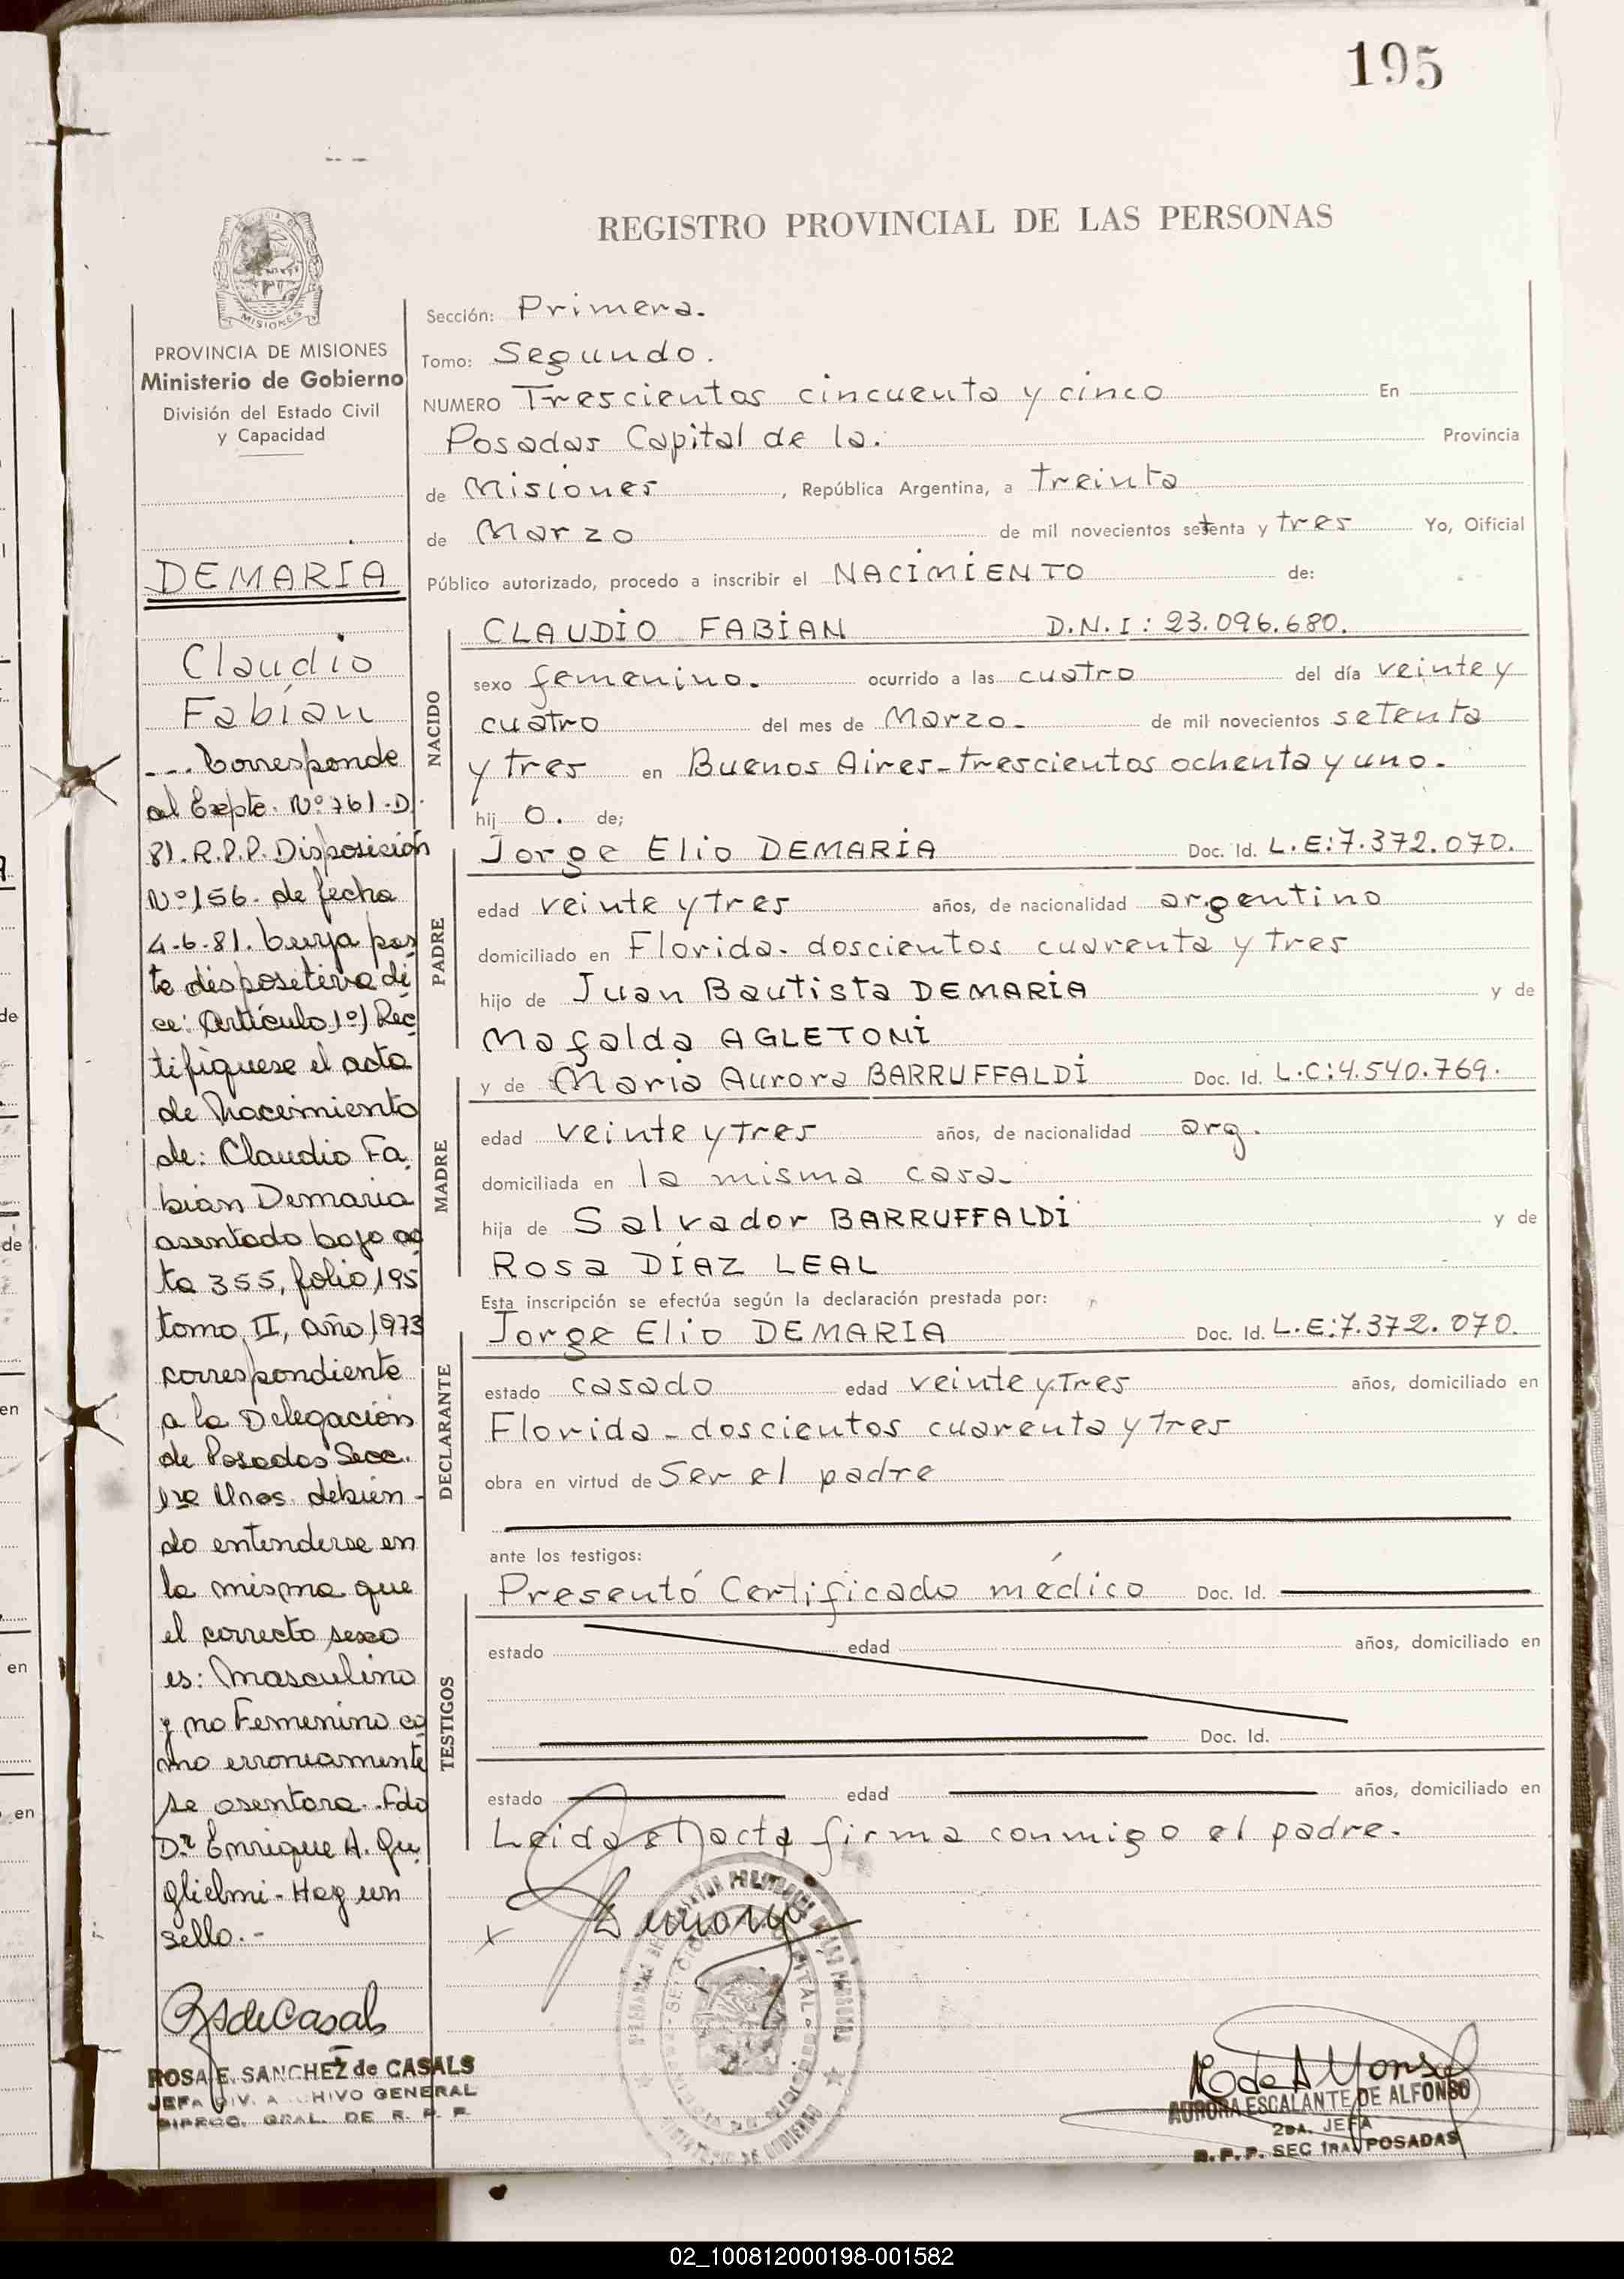 195
REGISTRO PROVINCIAL DE LAS PERSONAS
MISIONES
PROVINCIA DE MISIONES
Ministerio de Gobierno
División del Estado Civil
y Capacidad
DEMARIA
Claudio
Fabián
... Corresponde
al Expte. Nº 761.D.
81.R.P.P. Disposición
Nº 156. de fecha
4-6-81. cuya par
te dispositiva di
ce: Artículo 1º) Rec
tifiquese el acta
de Nacimiento
de: Claudio Fa
bián Demaria
asentado bajo ac
ta 355, folio 195
tomo II, año 1973
correspondiente
a la Delegación
de Posadas Secc.
1ra Unos. debien-
do entenderse en
la misma que
el correcto sexo
es: Masculino
y no Femenino co
mo erroneamente
se asentara. Fdo
Dr Enrique A. Gu
glielmi - Hay un
sello.-
RSdeCasals
ROSA E. SANCHEZ de CASALS
JEFA DIV. ARCHIVO GENERAL
DIREC. GRAL. DE R. P. P.
Sección: Primera.
Tomo: Segundo.
NUMERO Trescientos cincuenta y cinco En
Posadas Capital de la. Provincia
de Misiones, República Argentina, a treinta
de Marzo de mil novecientos setenta y tres Yo, Oificial
Público autorizado, procedo a inscribir el NACIMIENTO de:
NACIDO
CLAUDIO FABIAN D.N.I: 23.096.680.
sexo femenino. ocurrido a las cuatro del día veinte y
cuatro del mes de Marzo- de mil novecientos setenta
y tres en Buenos Aires-trescientos ochenta y uno.
hij o. de;
PADRE
Jorge Elio DEMARIA Doc. Id. L.E:7.372.070.
edad veinte y tres años, de nacionalidad argentino
domiciliado en Florida- doscientos cuarenta y tres
hijo de Juan Bautista DEMARIA y de
Mafalda AGLETONI
MADRE
y de Maria Aurora BARRUFFALDI Doc. Id. L.C:4.540.769.
edad veinte y tres años, de nacionalidad arg.
domiciliada en la misma casa-
hija de Salvador BARRUFFALDI y de
Rosa DÍAZ LEAL
Esta inscripción se efectúa según la declaración prestada por:
DECLARANTE
Jorge Elio DEMARIA Doc. Id. L.E:7.372.070.
estado casado edad veinte y tres años, domiciliado en
Florida - doscientos cuarenta y tres
obra en virtud de Ser el padre
ante los testigos:
TESTIGOS
Presentó Certificado médico Doc. Id.
estado edad años, domiciliado en
Doc. Id.
estado edad años, domiciliado en
Leida el acta firma conmigo el padre.
AURORA ESCALANTE DE ALFONSO
2DA. JEFA
R.P.P. SEC 1RA. POSADAS
02_100812000198-001582